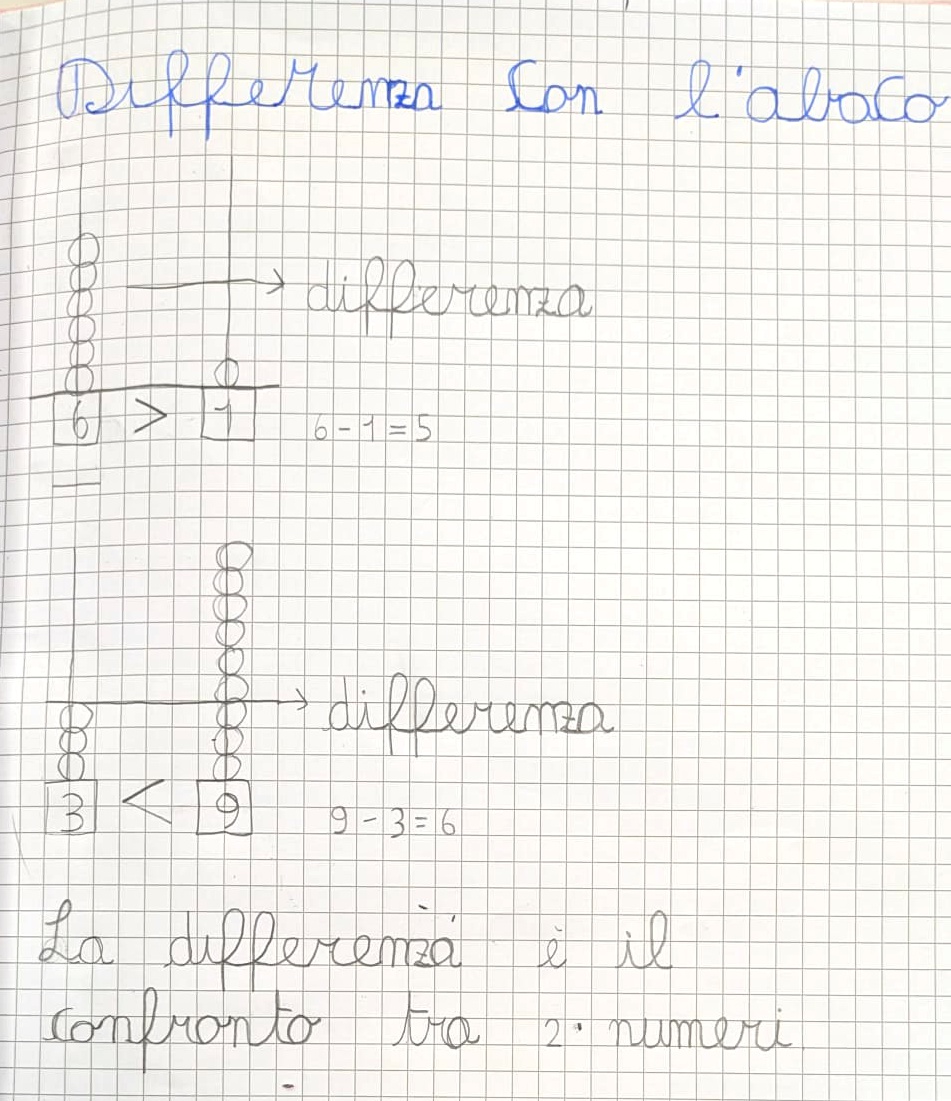 Differenza con l'abaco
differenza
6 > 1 6 - 1 = 5
differenza
3 < 9 9 - 3 = 6
La differenza è il
confronto tra 2 numeri